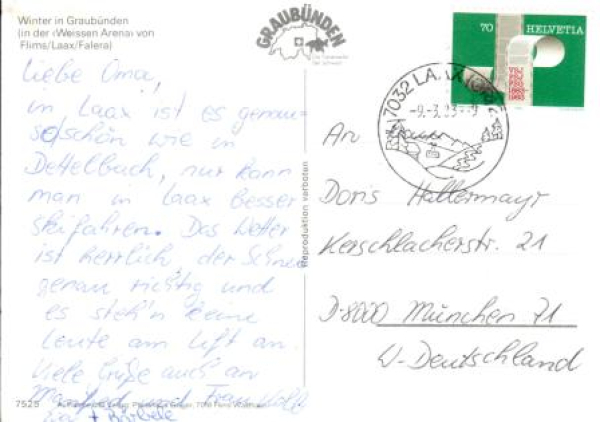 Winter in Graubünden
(in der «Weissen Arena» von
Flims/Laax/Falera)
GRAUBÜNDEN
Die Ferienecke
der Schweiz
70 HELVETIA
7032 LAAX
-9.-3.83--9
Liebe Oma,
in Laax ist es genau-
so schön wie in
Dettelbach, nur kann
man in Laax besser
skifahren. Das Wetter
ist herrlich, der Schnee
genau richtig und
es steh'n keine
Leute am Lift an.
Viele Grüße auch an
Manfred und Frau
+ Bärbele
Reproduktion verboten
An
Doris Hallermayr
Kerschlacherstr. 21
D-8000 München 71
W-Deutschland
7525